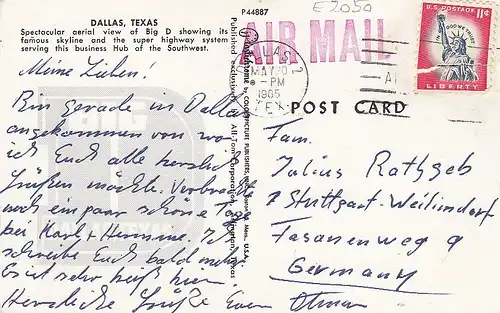 DALLAS, TEXAS
Spectacular aerial view of Big D showing its
famous skyline and the super highway system
serving this business Hub of the Southwest.
P44887
E 2050
AIR MAIL
DALLAS 2
MAY 20
-PM
1965
TEX.
U.S. POSTAGE 11¢
IN GOD WE TRUST
LIBERTY
POST CARD
Meine Lieben!
Bin gerade in Dallas
angekommen von wo
ich Euch alle herzlich
grüßen möchte. Verbrachte
noch ein paar schöne Tage
bei Karl + Hermine. Ich
schreibe Euch bald mehr.
Es ist sehr heiß hier.
Herzliche Grüße Euer Otmar
Fam.
Julius Rathgeb
7 Stuttgart-Weilimdorf
Fasanenweg 9
Germany